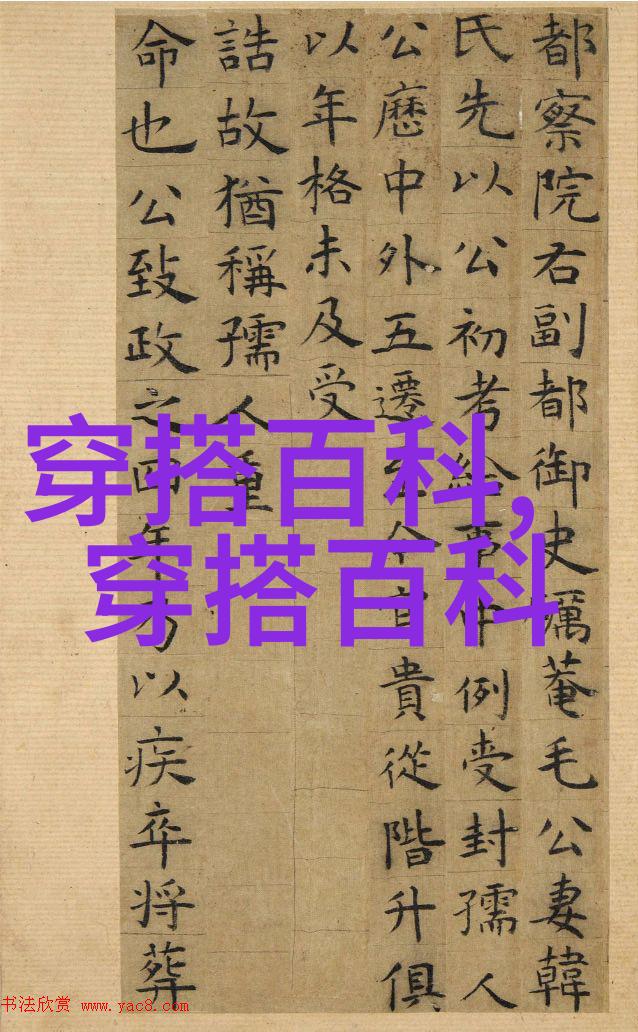 都察院右副都御史礪菴毛公妻韓
氏先以公初考給事中例受封孺人
公歷中外五遷至今官貴從階升俱
以年格未及受
誥故猶稱孺人重
命也公致政之四年乃以疾卒將葬
穿搭百科,
穿搭百科
书法欣赏 www.yac8.com